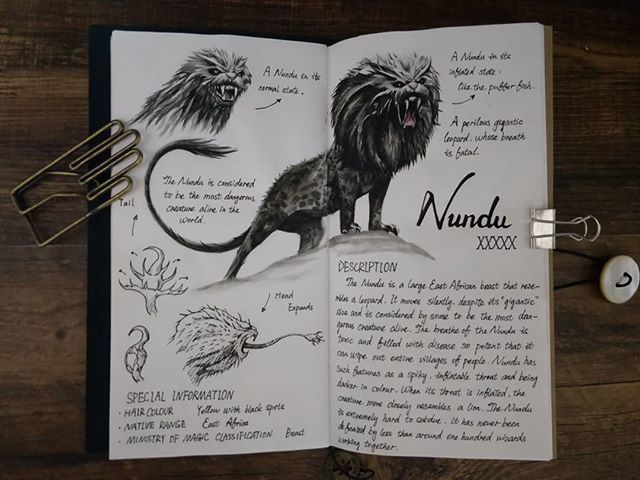 A Nundu in its
normal state.
The Nundu is considered
to be the most dangerous
creature alive in the
world.
Tail
Head
Expands
SPECIAL INFORMATION
· HAIR COLOUR Yellow with black spots
· NATIVE RANGE East Africa
· MINISTRY OF MAGIC CLASSIFICATION Beast
A Nundu in its
inflated state:
like the puffer fish.
A perilous gigantic
leopard, whose breath
is fatal.
Nundu
XXXXX
DESCRIPTION
The Nundu is a large East African beast that rese-
mbles a leopard. It moves silently, despite its "gigantic"
size and is considered by some to be the most dan-
gerous creature alive. The breathe of the Nundu is
toxic and filled with disease so potent that it
can wipe out entire villages of people. Nundu has
such features as a spiky, inflatable throat and being
darker in colour. When its throat is inflated, the
creature more closely resembles a lion. The Nundu
is extremely hard to subdue. It has never been
defeated by less than around one hundred wizards
working together.